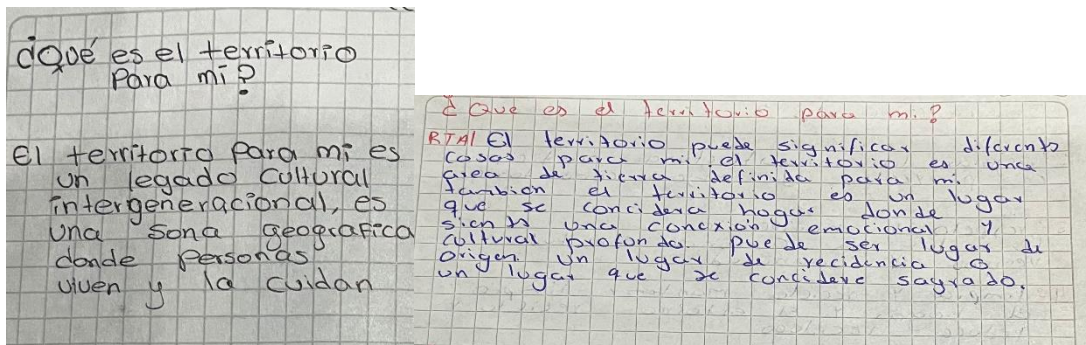 ¿Qué es el territorio
Para mi?
El territorio Para mi es
un legado cultural
intergeneracional, es
una sona geografica
donde personas
viven y la cuidan
¿Que es el territorio para mi?
RTA/ El territorio puede significar diferents
cosas para mi el territorio es una
area de tierra definida para mi.
tambien el territorio es un lugar
que se concidera hogar donde
sients una conexion emocional y
cultural profunda. puede ser lugar de
origen un lugar de recidencia o
un lugar que se concidere sagrado.